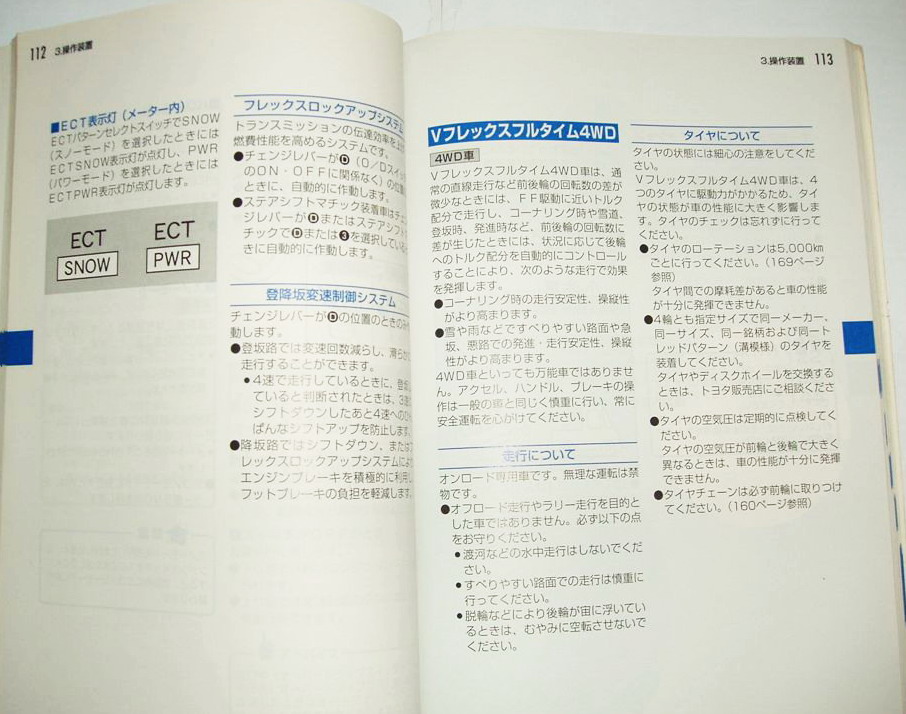 112 3.操作装置
■ECT表示灯（メーター内）
ECTパターンセレクトスイッチでSNOW
（スノーモード）を選択したときには
ECTSNOW表示灯が点灯し、PWR
（パワーモード）を選択したときには
ECTPWR表示灯が点灯します。
ECT ECT
SNOW PWR
フレックスロックアップシステム
トランスミッションの伝達効率を上
燃費性能を高めるシステムです。
●チェンジレバーがD（O/Dスイッ
のON・OFFに関係なく）の位
ときに、自動的に作動します。
●ステアシフトマチック装着車はチェ
ジレバーがDまたはステアシフト
チックでDまたは3を選択している
きに自動的に作動します。
登降坂変速制御システム
チェンジレバーがDの位置のときのみ
動します。
●登坂路では変速回数減らし、滑らか
走行することができます。
・4速で走行しているときに、登坂
ていると判断されたときは、3速
シフトダウンしたあと4速へのひ
ぱんなシフトアップを防止します
●降坂路ではシフトダウン、または
レックスロックアップシステムによ
エンジンブレーキを積極的に利用し
フットブレーキの負担を軽減します
3.操作装置 113
Vフレックスフルタイム4WD
4WD車
Vフレックスフルタイム4WD車は、通
常の直線走行など前後輪の回転数の差が
微少なときには、FF駆動に近いトルク
配分で走行し、コーナリング時や雪道、
登坂時、発進時など、前後輪の回転数に
差が生じたときには、状況に応じて後輪
へのトルク配分を自動的にコントロール
することにより、次のような走行で効果
を発揮します。
●コーナリング時の走行安定性、操縦性
がより高まります。
●雪や雨などですべりやすい路面や急
坂、悪路での発進・走行安定性、操縦
性がより高まります。
4WD車といっても万能車ではありませ
ん。アクセル、ハンドル、ブレーキの操
作は一般の車と同じく慎重に行い、常に
安全運転を心がけてください。
走行について
オンロード専用車です。無理な運転は禁
物です。
●オフロード走行やラリー走行を目的と
した車ではありません。必ず以下の点
をお守りください。
・渡河などの水中走行はしないでくだ
さい。
・すべりやすい路面での走行は慎重に
行ってください。
・脱輪などにより後輪が宙に浮いてい
るときは、むやみに空転させないで
ください。
タイヤについて
タイヤの状態には細心の注意をしてくだ
さい。
Vフレックスフルタイム4WD車は、4
つのタイヤに駆動力がかかるため、タイ
ヤの状態が車の性能に大きく影響しま
す。タイヤのチェックは忘れずに行って
ください。
●タイヤのローテーションは5,000km
ごとに行ってください。（169ページ
参照）
タイヤ間での摩耗差があると車の性能
が十分に発揮できません。
●4輪とも指定サイズで同一メーカー、
同一サイズ、同一銘柄および同一ト
レッドパターン（溝模様）のタイヤを
装着してください。
タイヤやディスクホイールを交換する
ときは、トヨタ販売店にご相談くださ
い。
●タイヤの空気圧は定期的に点検してく
ださい。
タイヤの空気圧が前輪と後輪で大きく
異なるときは、車の性能が十分に発揮
できません。
●タイヤチェーンは必ず前輪に取りつけ
てください。（160ページ参照）